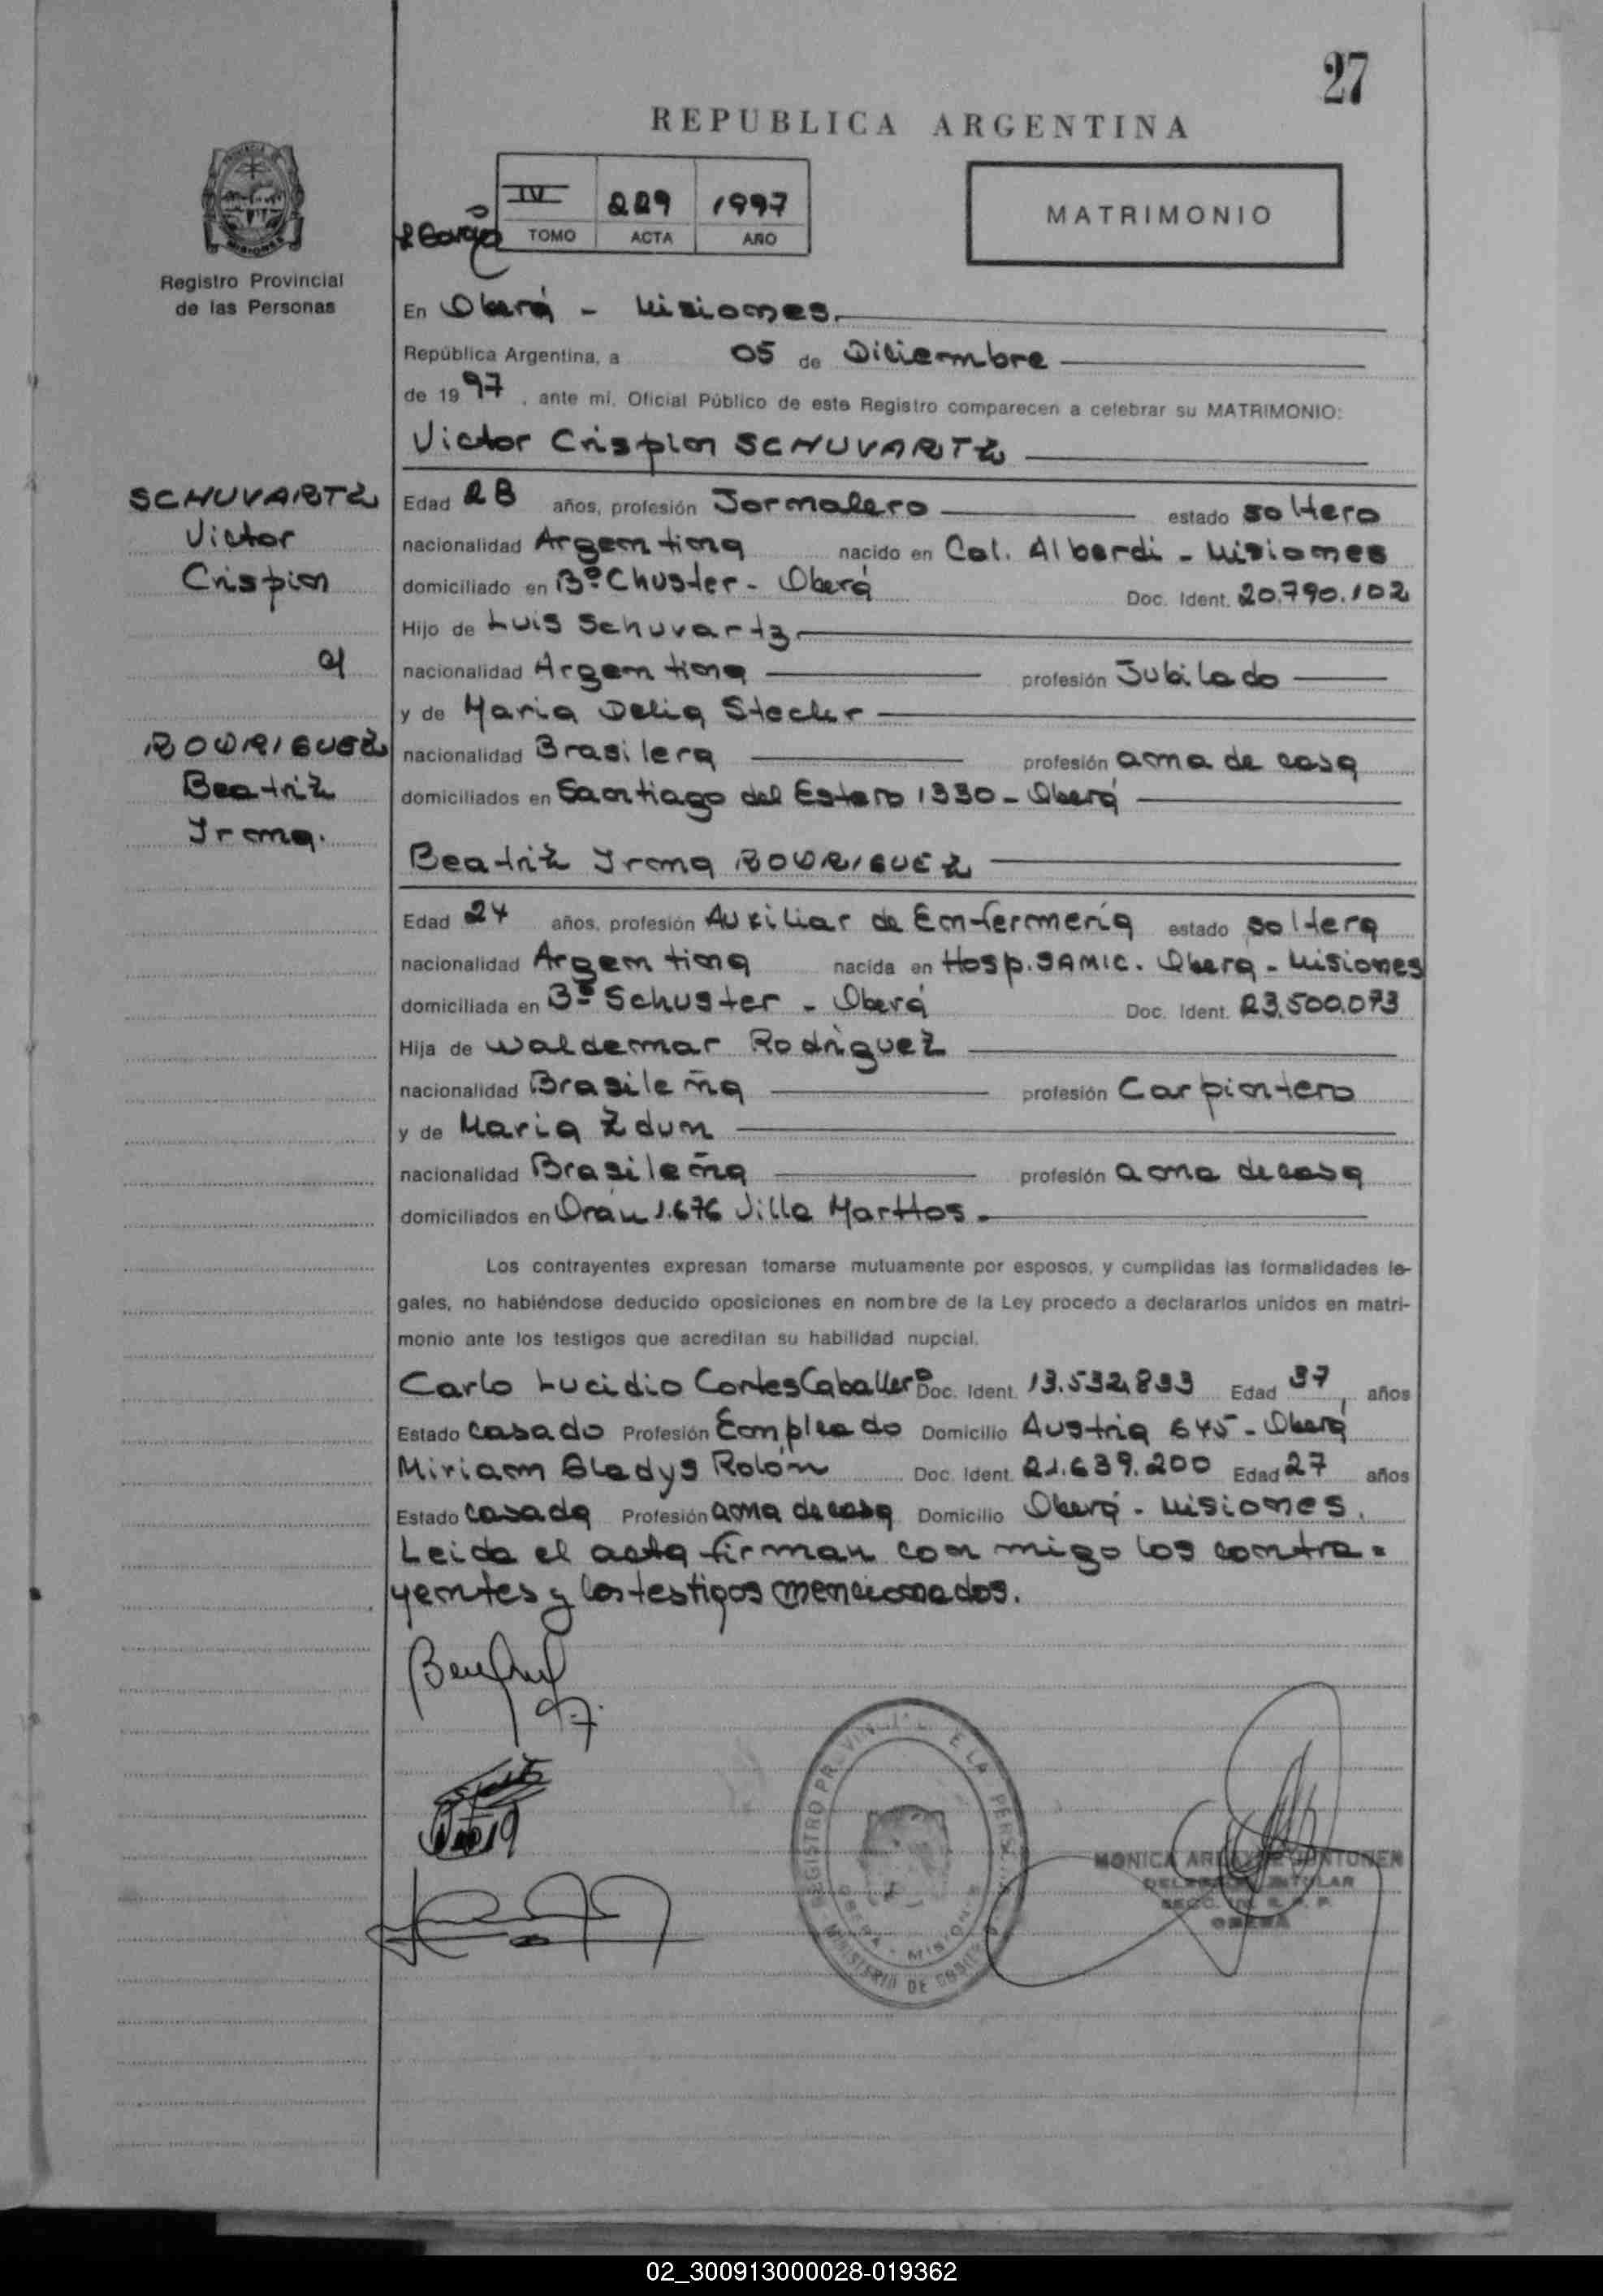 27
REPUBLICA ARGENTINA
IV 229 1997
TOMO ACTA AÑO
MATRIMONIO
Registro Provincial
de las Personas
En Oberá - Misiones.
República Argentina, a 05 de Diciembre
de 1997, ante mi, Oficial Público de este Registro comparecen a celebrar su MATRIMONIO:
Victor Crispin SCHUVARTZ
SCHUVARTZ
Victor
Crispin
c/
RODRIGUEZ
Beatriz
Irma.
Edad 28 años, profesión Jornalero estado soltero
nacionalidad Argentina nacido en Col. Alberdi - Misiones
domiciliado en Bº Chuster - Oberá Doc. Ident. 20.790.102
Hijo de Luis Schuvartz
nacionalidad Argentina profesión Jubilado
y de Maria Delia Stecler
nacionalidad Brasilera profesión ama de casa
domiciliados en Santiago del Estero 1330 - Oberá
Beatriz Irma RODRIGUEZ
Edad 24 años, profesión Auxiliar de Enfermería estado soltera
nacionalidad Argentina nacida en Hosp. SAMIC. Obera - Misiones
domiciliada en Bº Schuster - Oberá Doc. Ident. 23.500.073
Hija de Waldemar Rodriguez
nacionalidad Brasileña profesión Carpintero
y de Maria Zdun
nacionalidad Brasileña profesión ama de casa
domiciliados en Orán 1.676 Villa Marttos.
Los contrayentes expresan tomarse mutuamente por esposos, y cumplidas las formalidades le-
gales, no habiéndose deducido oposiciones en nombre de la Ley procedo a declararlos unidos en matri-
monio ante los testigos que acreditan su habilidad nupcial.
Carlo Lucidio Cortes Caballero Doc. Ident. 13.532.833 Edad 37 años
Estado casado Profesión Empleado Domicilio Austria 645 - Oberá
Miriam Gladys Rolón Doc. Ident. 21.639.200 Edad 27 años
Estado casada Profesión ama de casa Domicilio Oberá - Misiones.
Leida el acta firman con migo los contra=
yentes y los testigos mencionados.
REGISTRO PROVINCIAL DE LAS PERSONAS
OBERA - MISIONES
MINISTERIO DE GOBIERNO
MONICA
DELEGADA TITULAR
OBERA
02_300913000028-019362